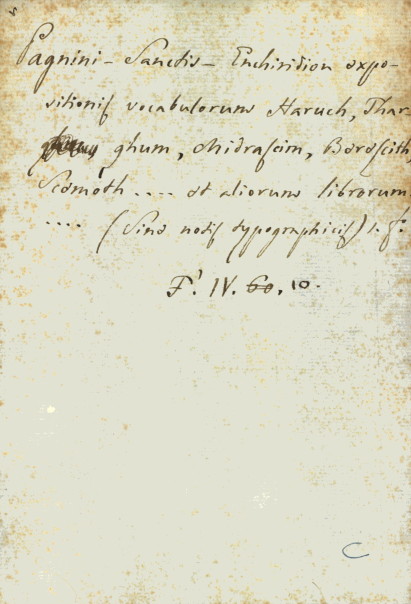 Pagnini - Sanctis - Enchiridion expo-
sitionis vocabulorum Haruch, Thar-
ghum, Midrascim, Berescith,
Scemoth .... et aliorum librorum
.... (Sine notis typographicis) 1. f.
F. IV. 60. 10.
C